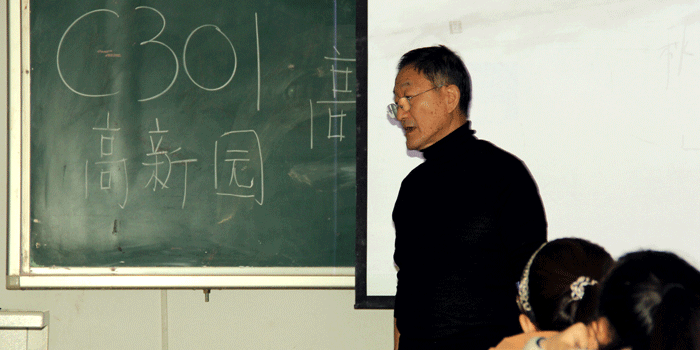 C301
高
高新园